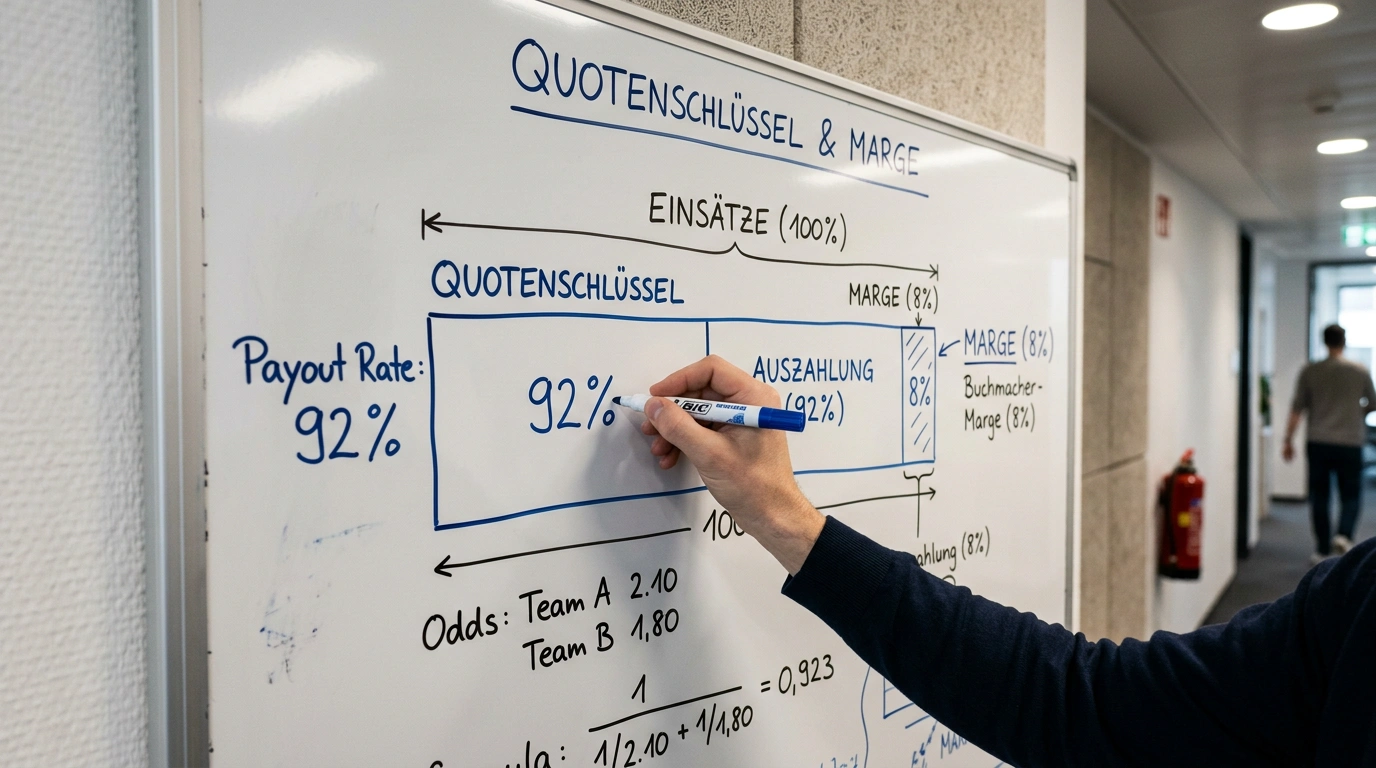 QUOTENSCHLÜSSEL & MARGE
EINSÄTZE (100%)
QUOTENSCHLÜSSEL
MARGE (8%)
Payout Rate:
92%
92%
AUSZAHLUNG
(92%)
8%
MARGE (8%)
Buchmacher-
Marge (8%)
100
ahlung (8%)
BIC
Odds: Team A 2.10
Team B 1,80
1
1/2.10 + 1/1,80
= 0,923